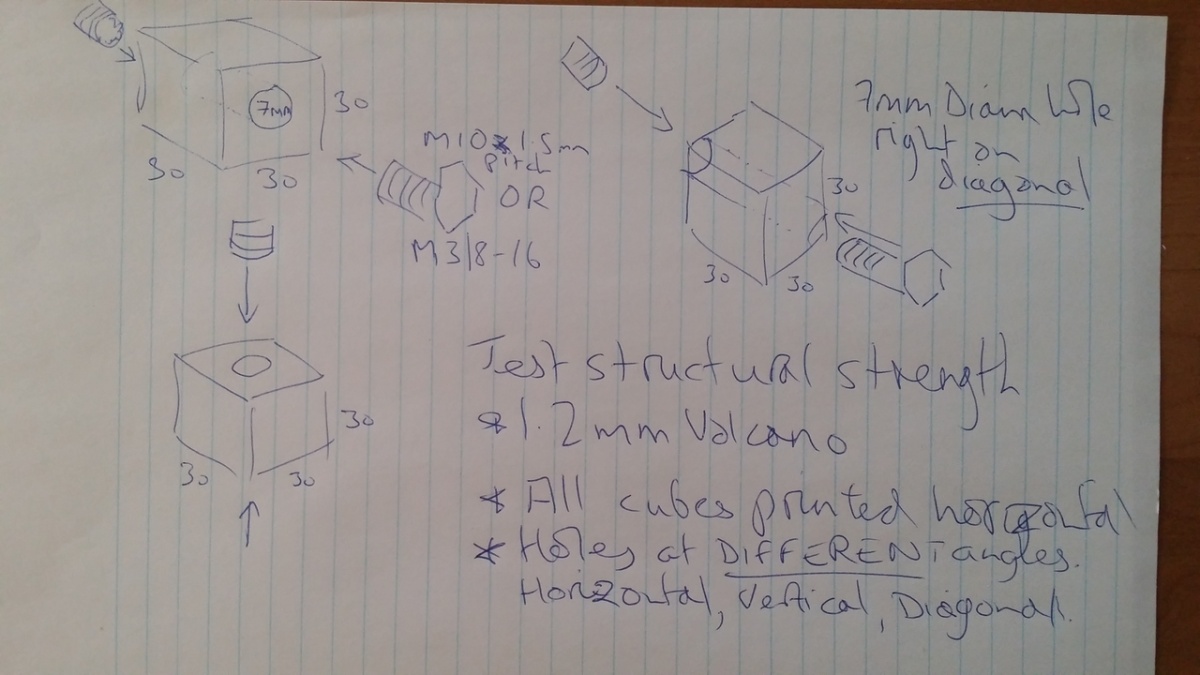 7mm
30
30
30
M10x1.5mm
Pitch
OR
M3/8-16
7mm Diam hole
right on
diagonal
30
30
30
30
30
30
Test structural strength
* 1.2mm Volcano
* All cubes printed horizontal
* Holes at DIFFERENT angles.
Horizontal, Vertical, Diagonal.